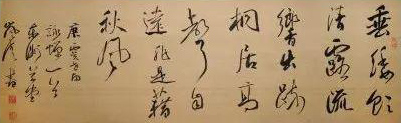 垂緌飲
清露流
響出疎
桐居高
聲自
遠非是藉
秋風
虞世南
詠蟬一首